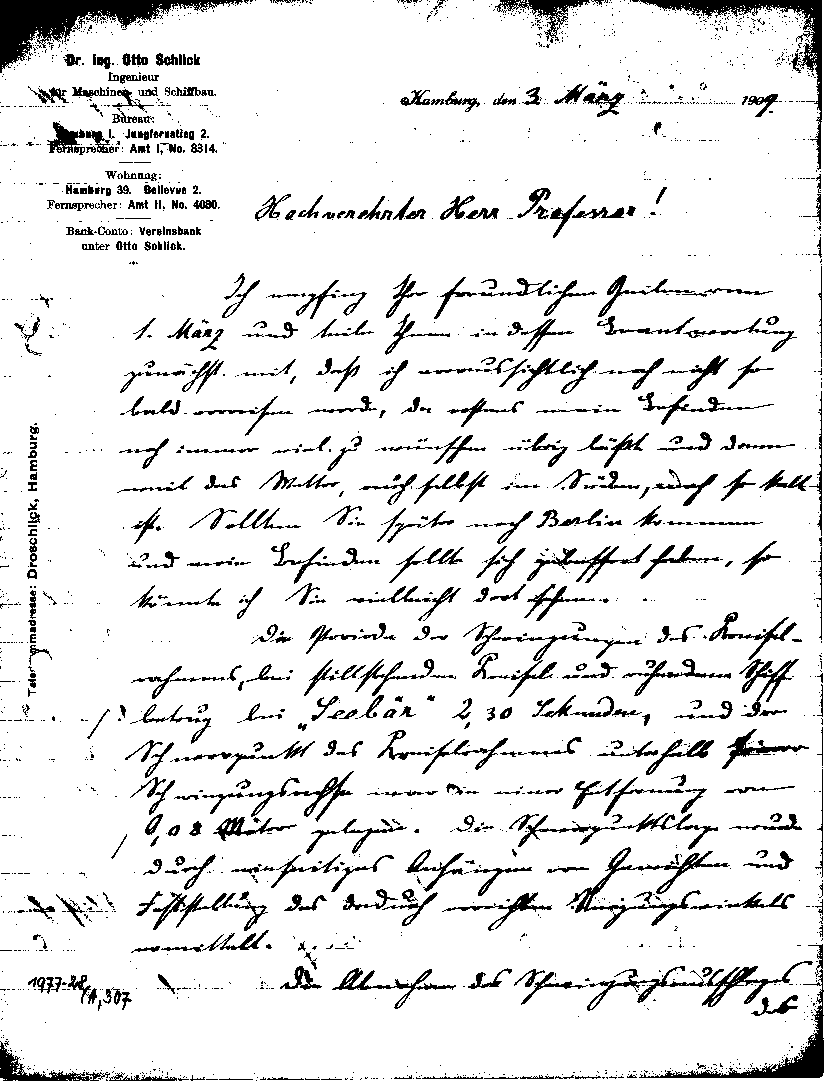 Dr. Ing. Otto Schlick
Ingenieur
für Maschinen- und Schiffbau.
Bureau:
Hamburg I. Jungfernstieg 2.
Fernsprecher: Amt I, No. 8314.
Wohnung:
Hamburg 39. Bellevue 2.
Fernsprecher: Amt II, No. 4080.
Bank-Conto: Vereinsbank
unter Otto Schlick.
Telegrammadresse: Droschlick, Hamburg.
Hamburg, den 3. März 1909
Hochverehrter Herr Professor!
Ich empfing Ihre freundlichen Zeilen vom
1. März und teile Ihnen in dessen Beantwortung
zunächst mit, daß ich voraussichtlich noch nicht so
bald verreisen werde, da erstens mein Befinden
noch immer viel zu wünschen übrig läßt und dann
weil das Wetter, auch selbst im Süden, noch so kalt
ist. Sollten Sie später nach Berlin kommen
und mein Befinden sollte sich gebessert haben, so
könnte ich Sie vielleicht dort sehen.
Die Periode der Schwingungen des Kreisel-
rahmens, bei stillstehendem Kreisel und ruhendem Schiff
betrug bei „Seebär" 2,30 Sekunden, und der
Schwerpunkt des Kreiselrahmens unterhalb seiner
Schwingungsachse war in einer Entfernung von
0,08 Meter gelegen. Die Schwerpunktslage wurde
durch einseitiges Anhängen von Gewichten und
Feststellung des dadurch erreichten Neigungswinkels
ermittelt.
Die Abnahme des Schwingungsausschlages
des
1977-28/A,307